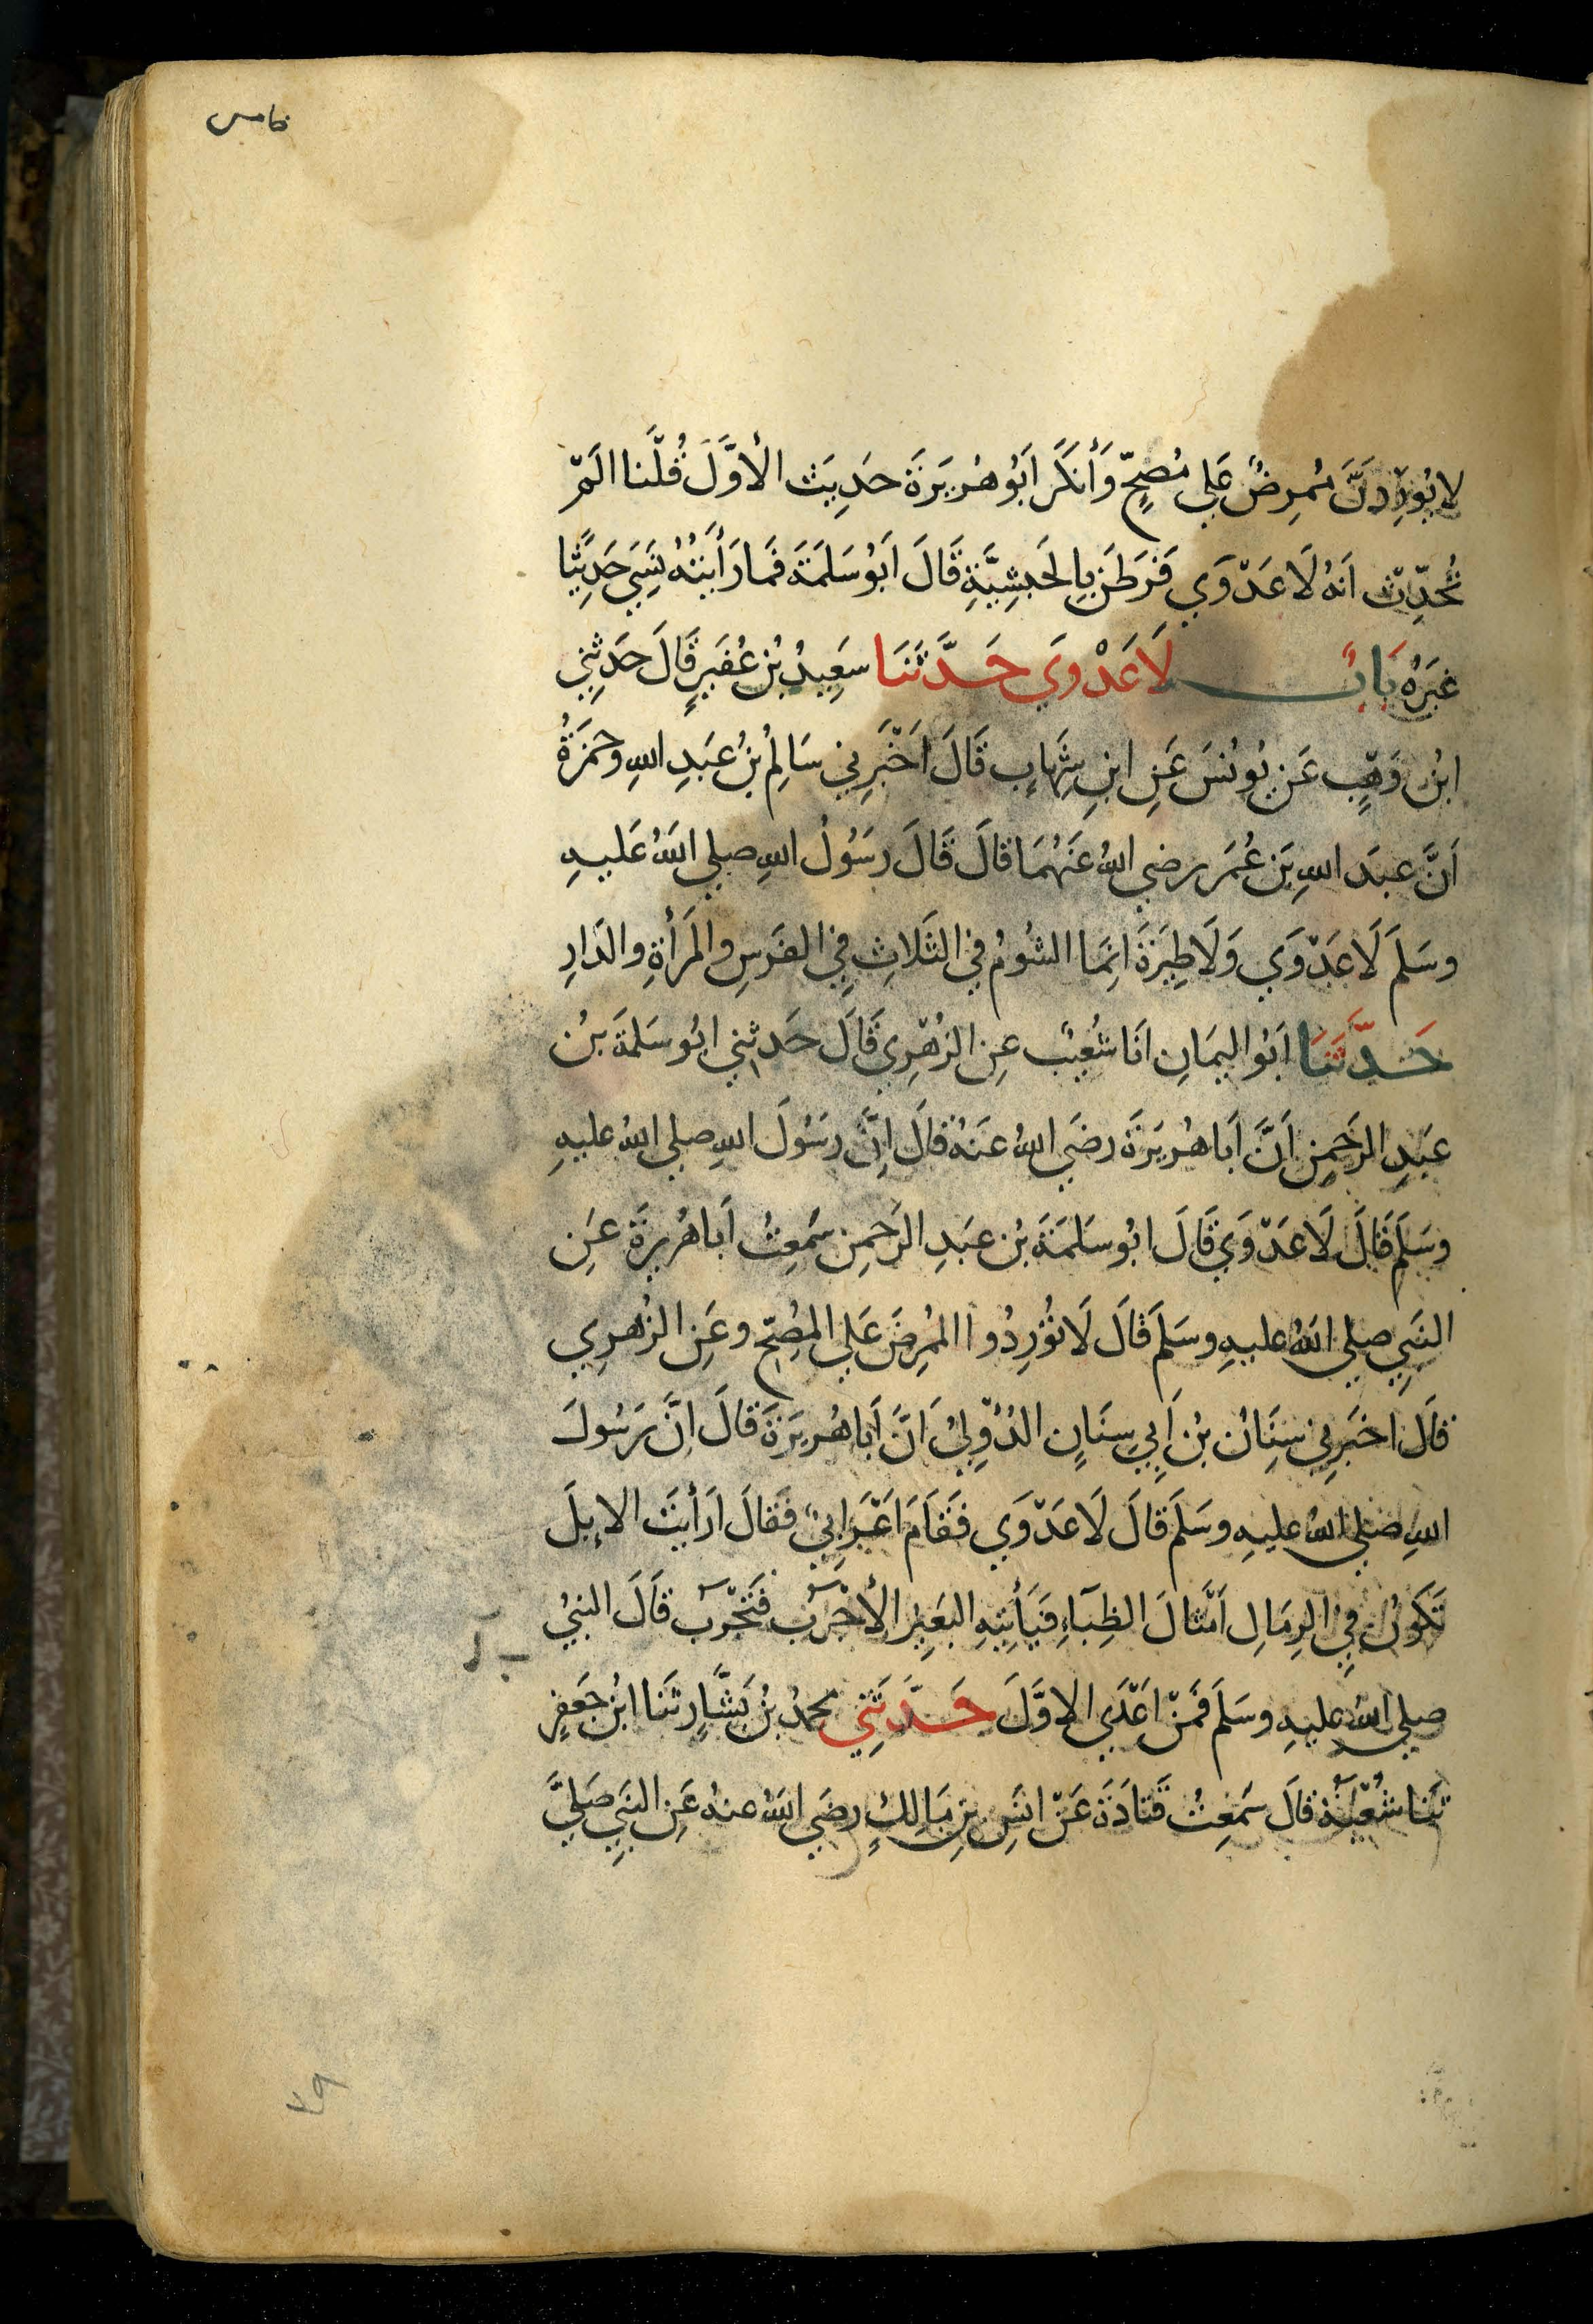 خامس
لا يُورِدَنَّ مُمرِضٌ عَلي مُصِحٍّ وَأَنكَرَ اَبُو هُرَيرَةَ حَدِيثَ الأوَّلَ قُلْنَا اَلَمْ
تُحَدِّث اَنهُ لَا عَدْوَي فَرَطَنَ بِالحَبَشِيَّةِ قَالَ اَبُو سَلَمَةَ فَمَا رَأَيتُهُ نَسِيَ حَدِيثًا
غيَرَهُ بَابُ لَا عَدْوَي حَدَّثَنَا سَعِيدُ بْن عُفَيرٍ قَالَ حَدثنِي
ابْن وَهْبٍ عَن يُونُسَ عَنِ ابنِ شِهَابٍ قَالَ اَخْبَرَنِي سَالِمُ بنُ عَبدِ اللهِ وحَمزَةُ
اَنَّ عبدَ اللهِ بَن عُمَر رضي اللهُ عَنهُمَا قالَ قَالَ رسَوُلُ اللهِ صلي اللهُ عَليهِ
وسَلمَ لَا عَدْوَي وَلَا طِيَرَةَ اِنمَا الشُومُ في الثَلاثِ فِي الفَرَسِ والمَرأةِ والدَارِ
حَدَّثَنَا اَبُو اليمَانِ انَا شُعَيبٌ عنِ الزهْرِي قَالَ حَدثنِي ابُو سَلمَةَ بنُ
عبَدِ الرَحمنِ اَنَّ اَبا هُريرَةَ رضَي اللهُ عنَهُ قالَ اِنَّ رسَوُلَ اللهِ صلي اللهُ عليهِ
وسَلمَ قَالَ لَا عَدْوَي قَالَ ابُو سَلمَةَ بْن عبَدِ الرَحمنِ سَمِعتُ اَبا هُريرةَ عَنِ
النَبِي صلي اللهُ عليهِ وسَلمَ قالَ لَا تُورِدُوا المُمرِضَ عَلي المُصِحّ وعَنِ الزُهرِي
قالَ اخبَرنِي سِنَانُ بْن اَبِي سِنَانٍ الدُؤلِيُ اَنَّ اَبا هُريرَةَ قالَ اِنَّ رَسُولَ
اللهِ صَلي اللهُ عليهِ وسَلمَ قالَ لَا عَدْوَي فَقَامَ اَعْرَابِيٌ فَقالَ اَرَأيتَ الإبلَ
تَكَونُ فِي الرِمَالِ اَمْثالَ الظِبَاءِ فيَأتِيهِ البَعيِرُ الأجْرَبُ فَتَجْرَبُ قَالَ النبيُ
صلي اللهُ عليهِ وسَلمَ فَمَنْ اَعْدَي الاوَّلَ حَدَّثَنِي محمدُ بنُ بَشَّارٍ ثنَا ابْن جعَفرٍ
ثنَا شُعْبَةُ قالَ سَمعِتُ قَتادَةَ عَنْ انَسِ بنِ مَالِكٍ رضَي اللهُ عنهُ عَنِ النبَيِ صَلَيَّ
٧٩